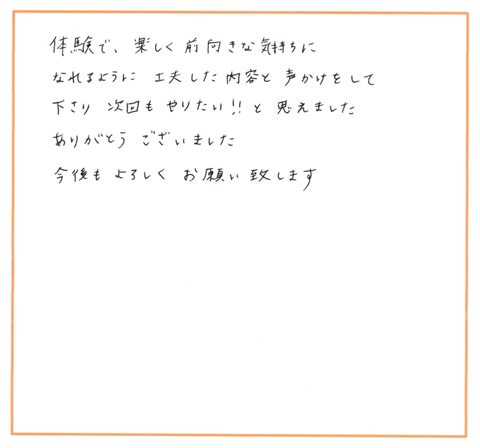 体験で、楽しく前向きな気持ちに
なれるように 工夫した内容と 声かけをして
下さり 次回も やりたい!!と 思えました
ありがとう ございました
今後も よろしく お願い致します